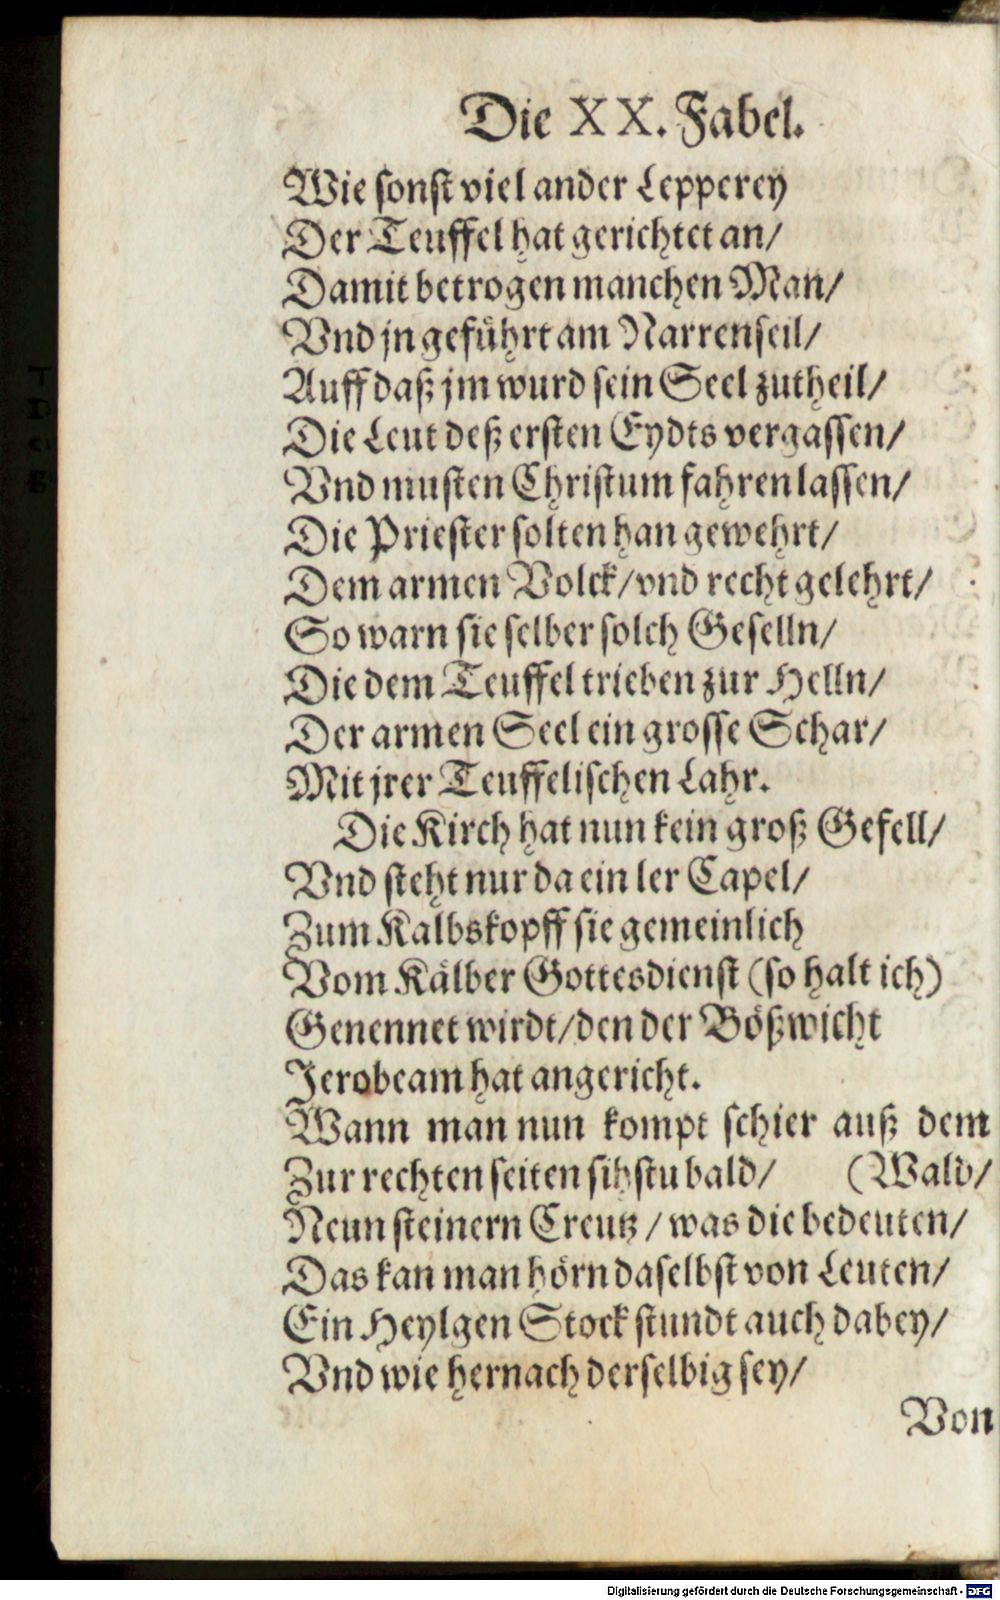 Die XX. Fabel.
Wie sonst viel ander Lepperey
Der Teuffel hat gerichtet an/
Damit betrogen manchen Man/
Vnd jn geführt am Narrenseil/
Auff daß jm wurd sein Seel zutheil/
Die Leut deß ersten Eydts vergassen/
Vnd musten Christum fahren lassen/
Die Priester solten han gewehrt/
Dem armen Volck/vnd recht gelehrt/
So warn sie selber solch Geselln/
Die dem Teuffel trieben zur Helln/
Der armen Seel ein grosse Schar/
Mit jrer Teuffelischen Lahr.
Die Kirch hat nun kein groß Gefell/
Vnd steht nur da ein ler Capel/
Zum Kalbskopff sie gemeinlich
Vom Kälber Gottesdienst (so halt ich)
Genennet wirdt/den der Bößwicht
Jerobeam hat angericht.
Wann man nun kompt schier auß dem
Zur rechten seiten sihstu bald/ (Wald/
Neun steinern Creutz / was die bedeuten/
Das kan man hörn daselbst von Leuten/
Ein Heylgen Stock stundt auch dabey/
Vnd wie hernach derselbig sey/
Von
Digitalisierung gefördert durch die Deutsche Forschungsgemeinschaft - DFG